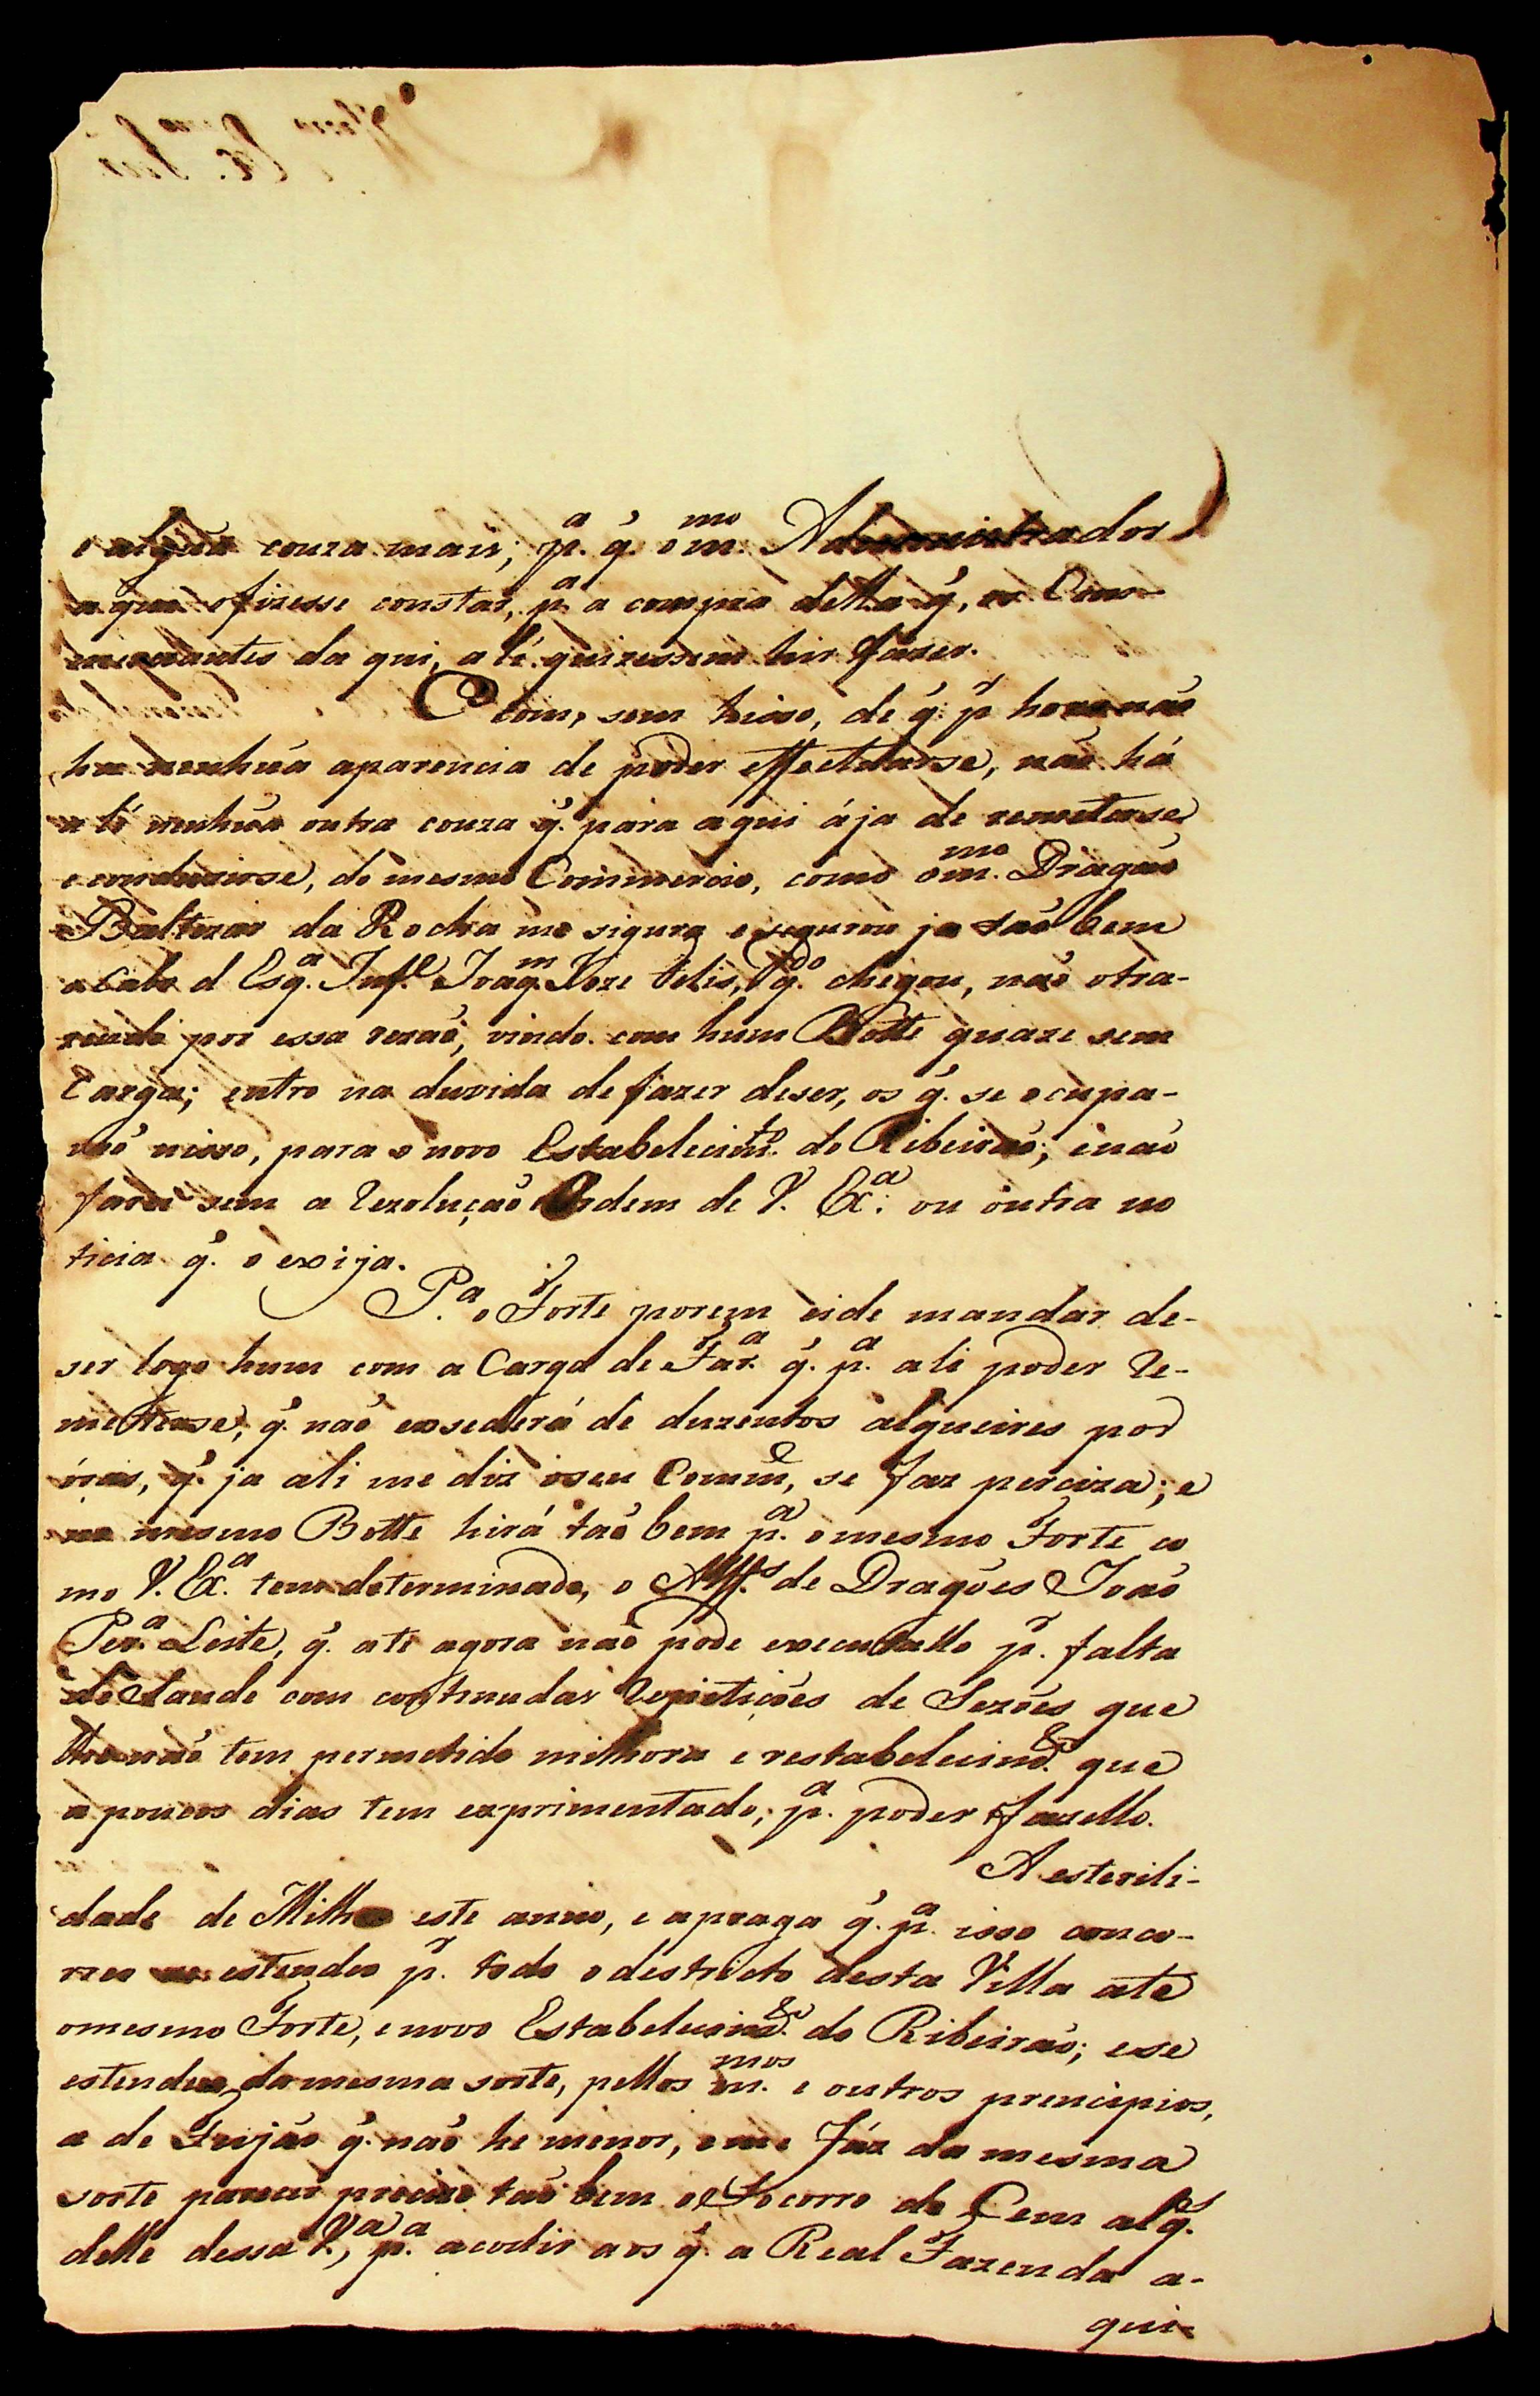 e algũa couza mais; p.ª q̃. o m.mo Administrador
a quem ofizesse constar, p.ª a compra della q̃, os Com-
merciantes da qui, a lé quizessem hir fazer.
Com, sem hisso, de q̃. p.r hora não
ha nenhũa aparencia de poder effectuarse, não há
a lé nenhũa outra couza q̃. para aqui ája de remeterse
e conduzirse, do mesmo Commercio, como o m.mo Dragão
Baltezar da Rocha me sigura e segurou ja tão bem
o Cabo d Esq.ª Inf.e Joaq.m Joze Telis, q.do chegou, não otra-
zendo por essa rezaõ, vindo com hum Botte quaze sem
Carga; entro na duvida de fazer deser, os q̃. se ocupa-
vaõ nisso, para o novo Estabelecim.to do Ribeiraõ; enaõ
farei sem a Rezoluçaõ e Ordem de V. Ex.ª ou outra no
ticia q̃. o exija.
P.ª o Forte porem eide mandar de-
ser logo hum com a Carga de Far.ª q̃. p.ª ali poder Re-
metterse, q̃. naõ exsederá de duzentos alqueires por
óra, q̃. ja ali me diz oseu Comm.e, se faz perciza; e
no mesmo Botte hirá taõ bem p.ª o mesmo Forte co
mo V. Ex.ª tem determinado, o Alff.s de Dragões Joaõ
Per.ª Leite, q̃. ate agora naõ pode executallo p.r falta
de Saude com continudas Repetições de Sezões que
lhe naõ tem permetido milhora e restabelecim.to que
a poucos dias tem exprimentado; p.ª poder fazello.
A esterili-
dade de Milho este anno, e apraga q̃. p.ª isso conco-
rreo se estendeo p.r todo o destricto desta Villa ate
omesmo Forte, e novo Estabelecim.to do Ribeiraõ; ese
estendeo damesma sorte, pellos m.mos e outros prencipios,
a de Feijão q̃. naõ he menor, e me fáz da mesma
sorte parecer preciso taõ bem o Socorro de Cem alq.s
delle dessa V.ª, p.ª acodir aos q̃. a Real Fazenda a-
qui